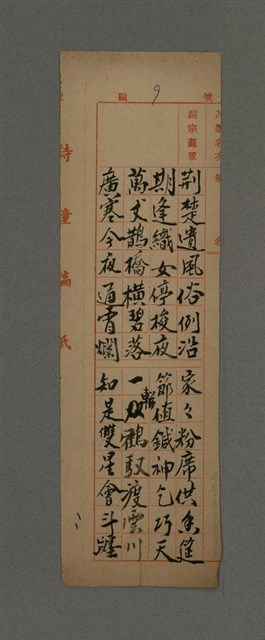 號 9 編
詞宗蓋章
荆楚遺風俗例沿 家々粉席供香筵
期逢織女停梭夜 節值鍼神乞巧天
萬丈鵲橋橫碧落 一双鶴馭渡雲川
廣寒今夜通霄爛 知是雙星會斗躔